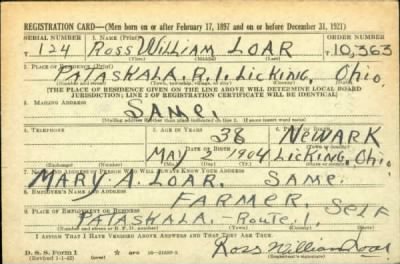 REGISTRATION CARD—(Men born on or after February 17, 1897 and on or before December 31, 1921)
SERIAL NUMBER 1. NAME (Print) ORDER NUMBER
T 124 Ross William LOAR T 10,363
(First) (Middle) (Last)
2. PLACE OF RESIDENCE (Print)
PATASKALA, R.1. Licking, Ohio
(Number and street) (Town) (County) (State)
[THE PLACE OF RESIDENCE GIVEN ON THE LINE ABOVE WILL DETERMINE LOCAL BOARD
JURISDICTION; LINE 2 OF REGISTRATION CERTIFICATE WILL BE IDENTICAL]
3. MAILING ADDRESS
SAME
[Mailing address if other than place indicated on line 2. If same insert word same]
4. TELEPHONE 5. AGE IN YEARS 6. PLACE OF BIRTH
38 NEWARK
DATE OF BIRTH
MAY 1904 Licking, Ohio
(Exchange) (Number) (Mo.) (Day) (Yr.) (State or country)
7. NAME AND ADDRESS OF PERSON WHO WILL ALWAYS KNOW YOUR ADDRESS
MARY. A. LOAR, SAME.
8. EMPLOYER'S NAME AND ADDRESS
FARMER, SELF
9. PLACE OF EMPLOYMENT OR BUSINESS
PATASKALA, - Route. 1,
(Number and street or R. F. D. number) (Town) (County) (State)
I AFFIRM THAT I HAVE VERIFIED ABOVE ANSWERS AND THAT THEY ARE TRUE.
D. S. S. Form 1
(Revised 1-1-42) (over) 16-21630-2
Ross William Loar